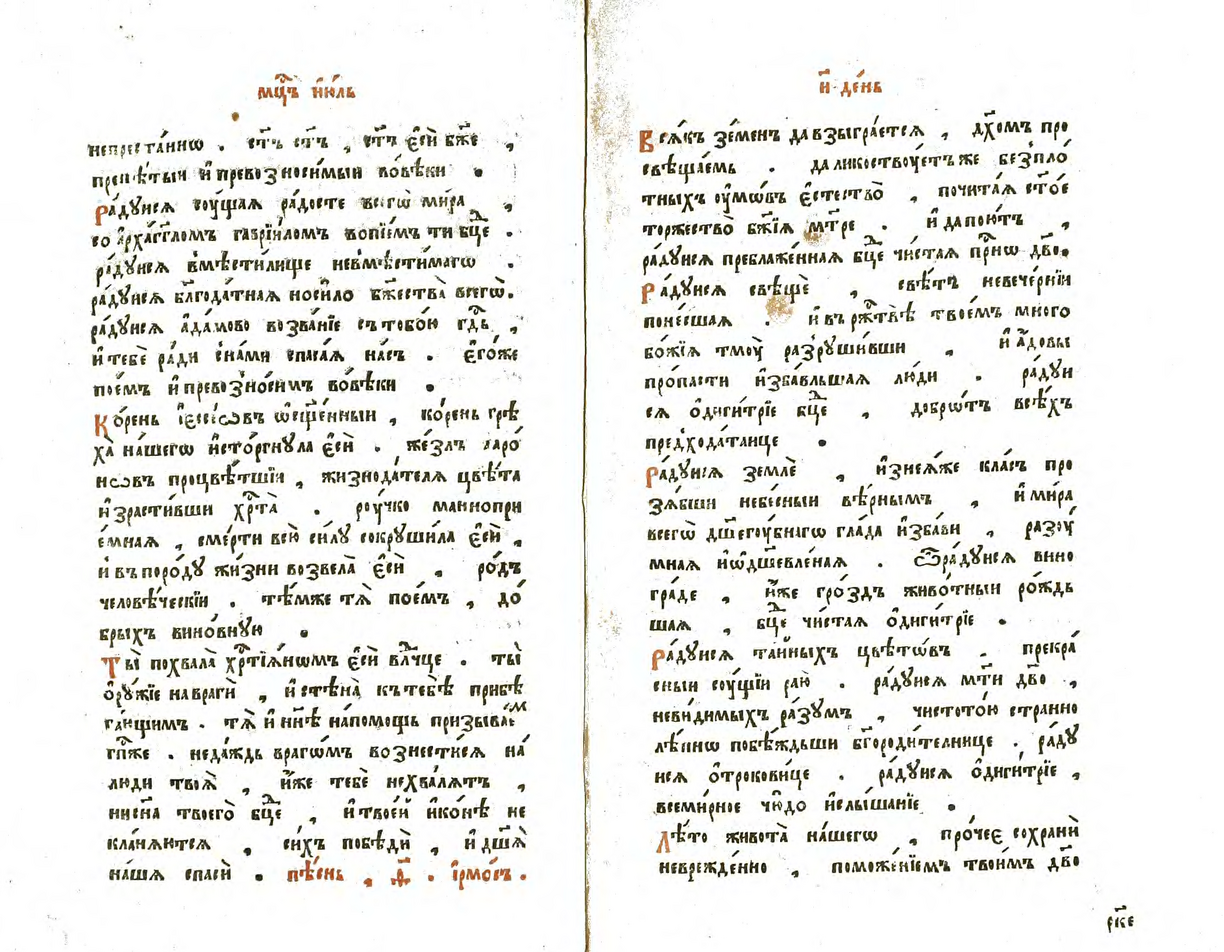 мц҃ъ і҆ю́ль
непреста́ннѡ . ст҃ъ ст҃ъ , ст҃ъ є҆сѝ бж҃е ,
препѣ́тыи и҆ превозноси́мыи во́вѣки .
Ра́дуисѧ соу́щаѧ ра́досте всегѡ̀ ми́ра ,
со а҆рха́гг҃ломъ гаврїи́ломъ вопїе́мъ ти бц҃е .
ра́дуисѧ вмѣсти́лище невмѣсти́магѡ .
ра́дуисѧ бл҃года́тнаѧ носи́ло бж҃ества̀ всегѡ̀.
ра́дуисѧ а҆да́мово возва́нїе съ тобо́ю гд҇ь ,
и҆ тебѐ ра́ди с на́ми спаса́ѧ на́съ . є҆го́же
пое́мъ и҆ превозно́симъ во́вѣки .
Ко́рень і҆ессе́ѡвъ ѡ҆сщ҃е́нныи , ко́рень грѣ
ха̀ на́шегѡ и҆сто́ргнула є҆сѝ . же́злъ а҆аро́
нѡвъ процвѣ́тшїи , жизнода́телѧ цвѣ́та
и҆зрасти́вши хрⷭ҇та̀ . роу́чко маннопрї
е́мнаѧ , сме́рти всю̀ си́лу сокруши́ла є҆сѝ ,
и҆ въ поро́ду жи́зни возвела̀ є҆сѝ , ро́дъ
человѣ́ческїи . тѣ́мже тѧ̀ пое́мъ , до́
брыхъ вино́вную .
Ты̀ похвала̀ хрⷭ҇тїѧ́нѡмъ є҆сѝ влⷣчце . ты̀
о҆ру́жїе на врагѝ , и҆ стѣна̀ къ тебѣ̀ прибѣ
га́ющимъ . тѧ̀ и҆ нн҃ѣ на́помощь призыва́емъ
гп҃же . неда́ждь врагѡ́мъ вознести́сѧ на
лю́ди твоѧ̀ , и҆̀же тебѐ не хва́лѧтъ ,
ни сн҃а твоегѡ̀ бц҃е , и҆ твое́й и҆ко́нѣ не
кла́нѧютсѧ , си́хъ побѣдѝ , и҆ дш҃ѧ̀
на́шѧ спасѝ . пѣ́снь , ѳ҃ . і҆рмо́съ .
и҃ де́нь
Всѧ́къ зе́менъ да взыгра́етсѧ , дх҃омъ про
свѣща́емь . да ликоствоу́етъ же безпло́
тныхъ оу҆мѡ́въ є҆стество̀ , почита́ѧ ст҃о́е
торжество̀ бж҃їѧ мт҃ре . и҆ да пою́тъ ,
ра́дуисѧ преблаже́ннаѧ бц҃е чи́стаѧ прⷭ҇нѡ дв҃о.
Ра́дуисѧ свѣщѐ , свѣ́тъ невече́рнїи
поне́сшаѧ . и҆ въ рж҃твѣ̀ твое́мъ много
бо́жїѧ тмоу̀ разруши́вши , и҆ а҆́довы
про́пасти и҆зба́вльшаѧ лю́ди . ра́дуи
сѧ о҆диги́трїе бц҃е , добрѡ́тъ всѣ́хъ
предхода́таице .
Ра́дуисѧ землѐ , и҆з неѧ́же кла́съ про
зѧ́бши небе́сныи вѣ́рнымъ , и҆ ми́ра
всегѡ̀ дш҃егоу́бнагѡ гла́да и҆зба́ви , разоу́
мнаѧ и҆ ѡ҆дш҃евле́ннаѧ . ѡ҆ра́дуисѧ вино
гра́де , и҆́же гро́здъ живо́тныи ро́ждь
шаѧ , бц҃е чи́стаѧ о҆диги́трїе .
Ра́дуисѧ та́йныхъ цвѣ́тѡвъ . прекра́
сныи соу́щїи раю̀ . ра́дуисѧ мт҃и дв҃о ,
неви́димыхъ ра́зумъ , чистото́ю странно
лѣ́пнѡ побѣ́ждьши бг҃ороди́телнице . ра́ду
исѧ о҆трокови́це . ра́дуисѧ о҆диги́трїе ,
всеми́рное чю́до и҆ слы́шанїе .
Лѣ́то живота̀ на́шегѡ , про́чеє сохранѝ
невреждéнно , поможе́нїемъ твои́мъ дв҃о